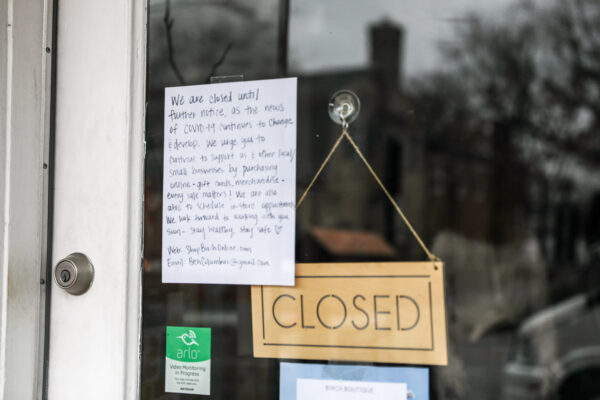 We are closed until
further notice, as the news
of COVID-19 continues to change
& develop. We urge you to
continue to support us & other local/
small businesses by purchasing
online - gift cards, merchandise -
every sale matters! We are also
able to schedule in-store appointments.
We look forward to working with you
soon - stay healthy, stay safe ♡
Web: ShopBirchOnline.com
Email: BirchColumbus@gmail.com
CLOSED
arlo
Video Monitoring
in Progress
BIRCH BOUTIQUE